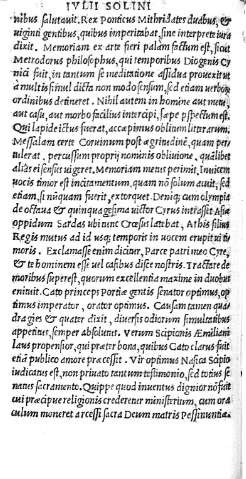 IVLII SOLINI
nibus salutauit. Rex Ponticus Mithridates duabus, &
uiginti gentibus, quibus imperitabat, sine interprete iura
dixit. Memoriam ex arte fieri palam factum est, sicut
Metrodorus philosophus, qui temporibus Diogenis Cy
nici fuit, in tantum se meditatione assidua prouexit ut
a multis simul dicta non modo sensuum, sed etiam uerborum
ordinibus detineret. Nihil autem in homine aut metu,
aut casu, aut morbo facilius intercipi, sæpe pspectum est.
Qui lapide ictus fuerat, accæpimus oblitum litterarum.
Messalam certe Coruinum post ægritudinem, quam per
tulerat. percussum proprij nominis obliuione. qualibet
alias ei sensus uigeret. Memoriam metus perimit, Inuicem
uocis timor est incitamentum, quam nō solum acuit, sed
etiam, si nūquam fuerit, extorquet. Deniq; cum olympia
de octaua & quinquagesima uictor Cyrus intrasset Asiæ
oppidum Sardas ubi tunc Cræsus latebat, Athis filius
Regis mutus ad id usq; temporis in uocem erupit ui ti
moris. Exclamasse enim dicitur, Parce patri meo Cyre,
& te hominem esse uel casibus disce nostris. Tractare de
moribus superest, quorum excellentia maxime in duobus
enituit. Cato princeps Portiæ gentis senator optimus, op
timus imperator, orator optimus. Causam tamen qua
dragies & quater dixit, diuersis odiorum simultatibus
appetitus, semper absolutus. Verum Scipionis Æmiliani
laus propensior, qui præter bona, quibus Cato clarus fuit
etiā publico amore præcessit. Vir optimus Nasica Scipio
iudicatus est, non priuato tantum testimonio, sed totius se
natus sacramento. Quippe quod inuentus dignior nō fuit
cui præcipuæ religionis crederetur ministerium, cum ora
culum moneret arcessi sacra Deum matris Pessinuntia.